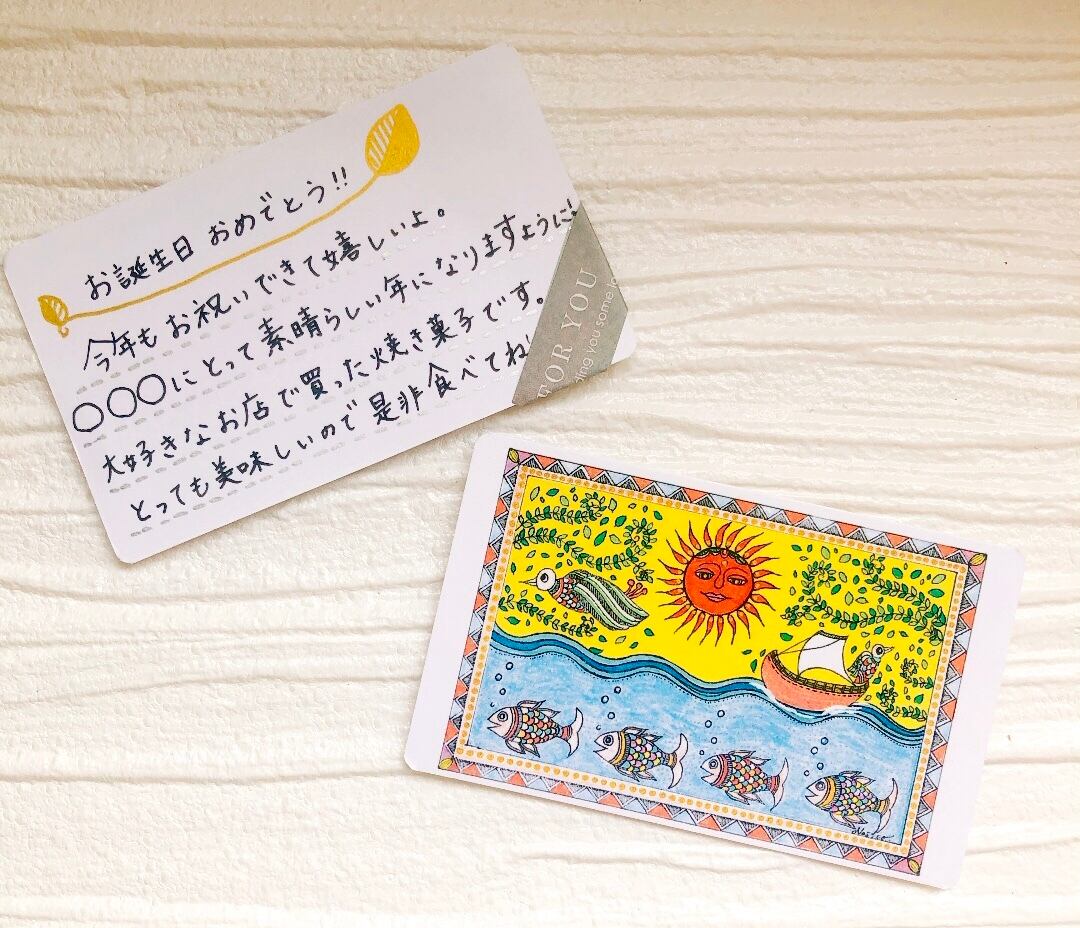 お誕生日 おめでとう!!
今年も お祝いできて嬉しいよ。
○○○にとって 素晴らしい年になりますように!
大好きなお店で買った焼き菓子です。
とっても美味しいので是非食べてね!
FOR YOU
ding you some lo